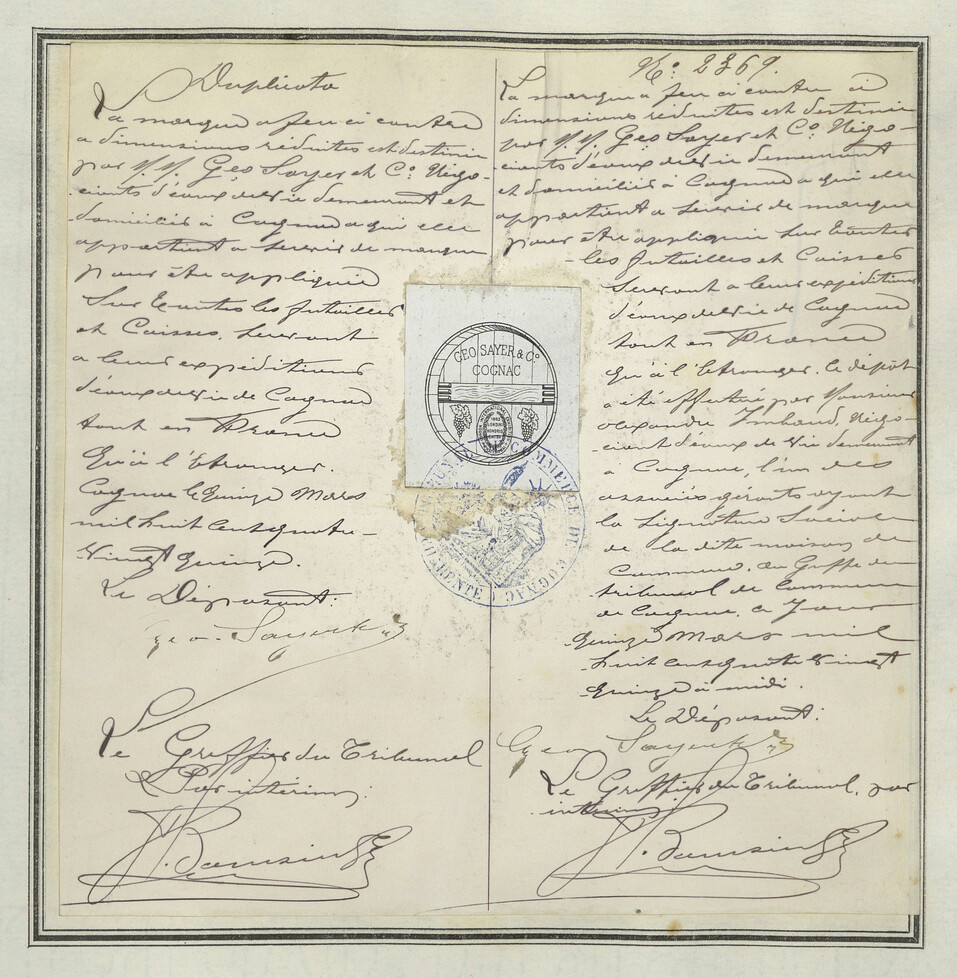 Duplicata
La marque a feu ci contre
a dimensions réduites est destinée
par M.M. Geo Sayer et Co. Négo-
ciants d'eaux de vie demeurant et
domiciliés à Cognac a qui elle
appartient a servir de marque
pour être appliquée
Sur toutes les futailles
et Caisses, servant
a leurs expéditions
d'eaux de vie de Cognac
tant en France
Qu'à l'Etranger.
Cognac le Quinze Mars
mil huit cent quatre-
Vingt quinze.
Le Déposant:
Geo. Sayer & Co
Le Greffier du Tribunal
Par intérim:
No: 2369.
La marque a feu ci contre à
dimensions réduites est destinée
par M.M. Geo Sayer et Co. Négo-
ciants d'eaux de vie demeurant
et domiciliés à Cognac a qui elle
appartient a servir de marque
pour être appliquée sur toutes
les futailles et Caisses
servant a leurs expéditions
d'eaux de vie de Cognac
tant en France
Qu'à l'Etranger. Le dépôt
a été effectué par Monsieur
Alexandre Négo-
ciant d'eaux de vie demeurant
a Cognac, l'un des
associés gérants ayant
la Signature Sociale
de la dite maison de
Commerce, au Greffe du
tribunal de Commerce
de Cognac, ce Jour
Quinze Mars mil
huit cent quatre vingt
quinze à midi.
Le Déposant:
Geo Sayer & Co
Le Greffier du Tribunal, par
intérim:
GEO SAYER & Co
COGNAC
1862
LONDINI
HONORIS
CAUSA
TRIBUNAL DE COMMERCE DE COGNAC
CHARENTE